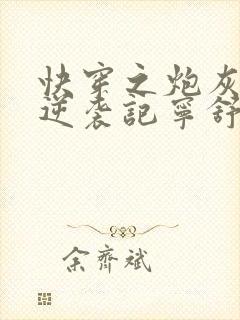 快穿之炮灰
逆袭記寧舒
余齊斌